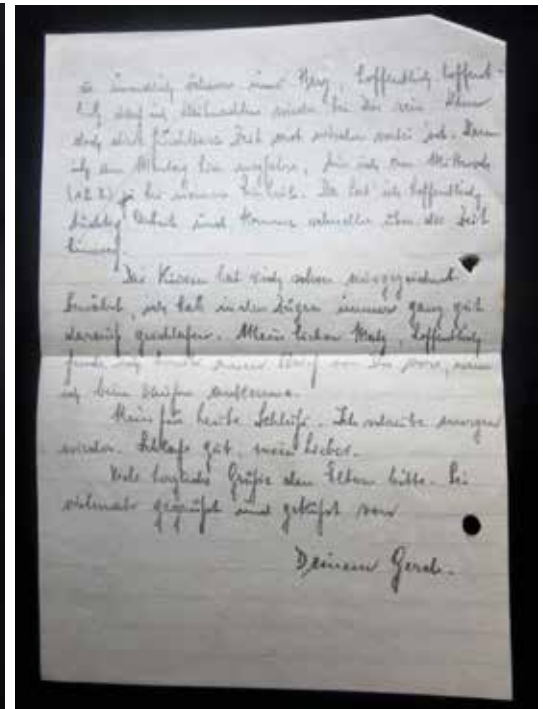 so unendlich schwer ums Herz, hoffentlich hoffent-
lich darf ich Weihnachten wieder bei Dir sein. Wenn
doch diese furchtbare Zeit erst wieder vorbei ist. Wenn
ich am Montag hier wegfahre, bin ich am Mittwoch
bei meiner Einheit. Da hab ich hoffentlich
tüchtig Arbeit und komme schneller über die Zeit
hinweg.
Das Kissen hat sich schon ausgezeichnet
bewährt, ich hab in den Zügen immer ganz gut
darauf geschlafen. Mein lieber, hoffentlich
finde ich einen Brief von Dir vor, wenn
ich beim ankomme.
Nun für heute Schluß. Ich schreibe morgen
wieder. Schlafe gut, mein Lieber.
Viele herzliche Grüße den Eltern bitte. Sei
vielmals gegrüßt und geküßt von
Deinem Gerd.